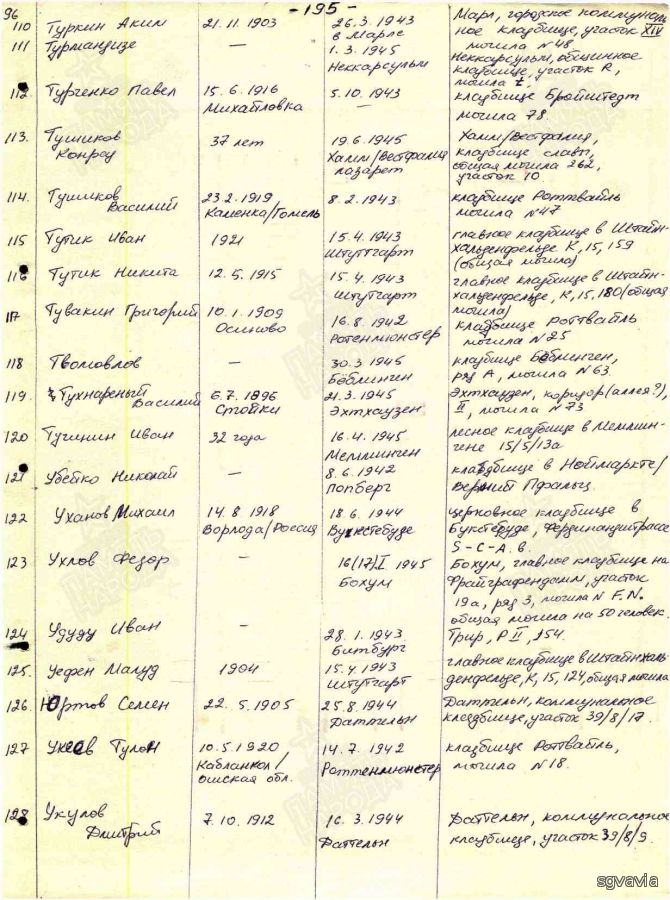 96
-195-
110 Туркин Аким 21.11.1903 26.3.1943 Марл, городское коммуналь
в Марле ное кладбище, участок XIV
могила N 48.
111 Турмандизе — 1.3.1945 Неккарсульм, общинное
Неккарсульм кладбище, участок R,
могила
112. Турченко Павел 15.6.1916 5.10.1943 кладбище Бройштедт
Михайловка — могила 78.
113. Тушиков 37 лет 19.6.1945 Халм/Вестфалия,
Конрад Халм/Вестфалия кладбище славы,
лазарет общая могила 262,
участок 10
114. Тушков 23.2.1919 8.2.1943 кладбище Роттвайль
Василий Каменка/Гомель могила N47
115 Тутик Иван 1921 15.4.1943 главное кладбище в Штайн-
Штуттгарт хальденфельде К, 15, 159
(общая могила)
116 Тутик Никита 12.5.1915 15.4.1943 главное кладбище в Штайн-
Штутгарт халденфельде, К, 15, 180 (общая
могила)
117 Тувакин Григорий 10.1.1909 16.8.1942 кладбище Роттвайль
Осиново Ротенмюнстер могила N 25
118 Твомовлов — 30.3.1945 кладбище Бёблинген,
Бёблинген ряд А, могила N 63.
119. Тухнареный 6.7.1896 21.3.1945 Эхтхаузен, коридор (аллея?),
Василий Стойки Эхтхаузен II, могила N 73
120 Тучинин Иван 32 года 16.4.1945 лесное кладбище в Мемлин-
Мемлинген гене 15/5/13а
121 Убейко Николай — 8.6.1942 кладбище в Ноймаркте/
Попберг Верхний Пфальц.
122 Уханов Михаил 14.8.1918 18.6.1944 церковное кладбище в
Ворлода/Россия Букстебуде Букстебуде, Фердинандштрассе
S-C-A.в.
123 Ухлов Федор — 16(17)I 1945 Бохум, главное кладбище на
Бохум Фрайграфендамм, участок
19а, ряд 3, могила N F.N.
общая могила на 50 человек.
124 Удуду Иван — 28.1.1943 Трир, Р II, 154.
Битбург
125. Уефен Малуд 1904 15.4.1943 главное кладбище в Штайнхаль
Штутгарт денфельде, К, 15, 124, общая могила
126. Юртов Семен 22.5.1905 25.8.1944 Даттельн, коммунальное
Даттельн кладбище, участок 39/8/17.
127 Укеев Тулон 10.5.1920 14.7.1942 кладбище Роттвайль,
Кабланкол/ Роттенмюнстер могила N 18.
Ошская обл.
128 Укулов 7.10.1912 16.3.1944 Даттельн, коммунальное
Дмитрий Даттельн кладбище, участок 39/8/9.
sgvavia